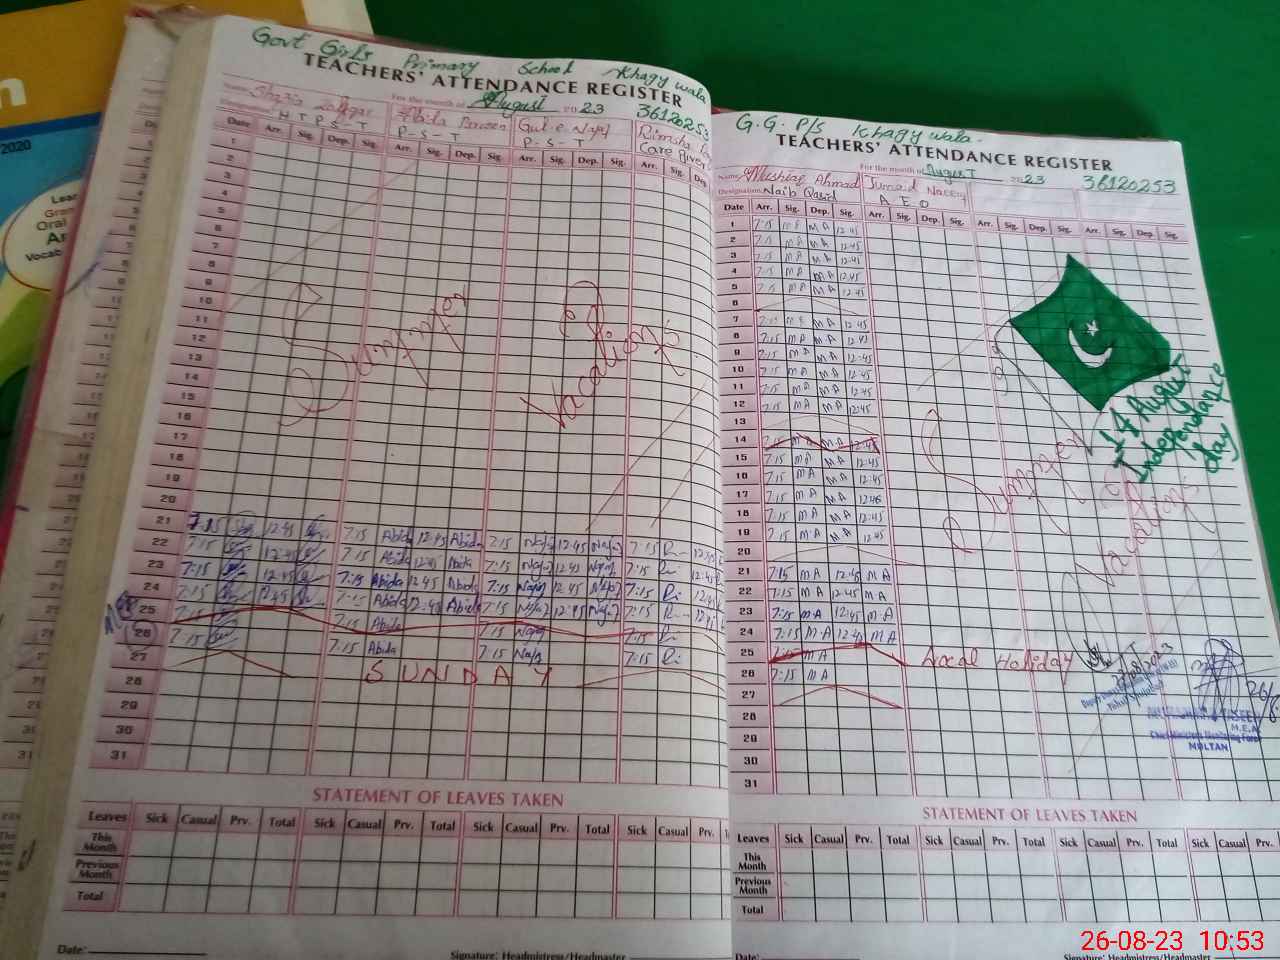 Govt Girls Primary School Khagy wala
TEACHERS' ATTENDANCE REGISTER
For the month of August 2023 36120253
Name: Shazia Abida Parveen Gul-e-Nayab Rimsha
Designation: H T P.S.T P-S-T P-S-T Care giver
Date Arr. Sig. Dep. Sig. Arr. Sig. Dep. Sig. Arr. Sig. Dep. Sig. Arr. Sig. Dep
1
2
3
4
5
6
7
8
9
10
11
12
13
14
15
16
17
18
19
20
Summer Vacations
21 7:15 12:45 7:15 Abida 12:45 Abida 7:15 12:45 7:15
22 7:15 12:45 7:15 Abida 12:45 Abida 7:15 12:45 7:15
23 7:15 12:45 7:15 Abida 12:45 Abida 7:15 12:45 7:15
24 7:15 12:45 7:15 Abida 12:45 Abida 7:15 12:45 7:15
25 7:15 7:15 Abida 7:15 7:15
26 7:15 7:15 Abida 7:15 7:15
27 SUNDAY
28
29
30
31
STATEMENT OF LEAVES TAKEN
Leaves Sick Casual Prv. Total Sick Casual Prv. Total Sick Casual Prv. Total Sick Casual Prv.
This Month
Previous Month
Total
Date:
Signature: Headmistress/Headmaster
G.G. P/S Khagy wala.
TEACHERS' ATTENDANCE REGISTER
For the month of August 2023 36120253
Name: Mushtaq Ahmad Junaid Naeem
Designation: Naib Qasid A E O
Date Arr. Sig. Dep. Sig. Arr. Sig. Dep. Sig. Arr. Sig. Dep. Sig. Arr. Sig. Dep. Sig.
1 7:15 MA MA 12:45
2 7:15 MA MA 12:45
3 7:15 MA MA 12:45
4 7:15 MA MA 12:45
5 7:15 MA MA 12:45
6
7 7:15 MA MA 12:45
8 7:15 MA MA 12:45
9 7:15 MA MA 12:45
10 7:15 MA MA 12:45
11 7:15 MA MA 12:45
12 7:15 MA MA 12:45
13
14 7:15 MA MA 12:45
15 7:15 MA MA 12:45
16 7:15 MA MA 12:45
17 7:15 MA MA 12:45
18 7:15 MA MA 12:45
19 7:15 MA MA 12:45
20
14 August
Independance
day
Summer Vacations
21 7:15 MA 12:45 MA
22 7:15 MA 12:45 MA
23 7:15 MA 12:45 MA
24 7:15 MA 12:45 MA
25 7:15 MA Local Holiday
26 7:15 MA
27
28
29
30
31
26/8
M.E.A
Chief Minister's Monitoring Force
MULTAN
STATEMENT OF LEAVES TAKEN
Leaves Sick Casual Prv. Total Sick Casual Prv. Total Sick Casual Prv. Total Sick Casual
This Month
Previous Month
Total
Date:
Signature: Headmistress/Headmaster
2020
26-08-23 10:53